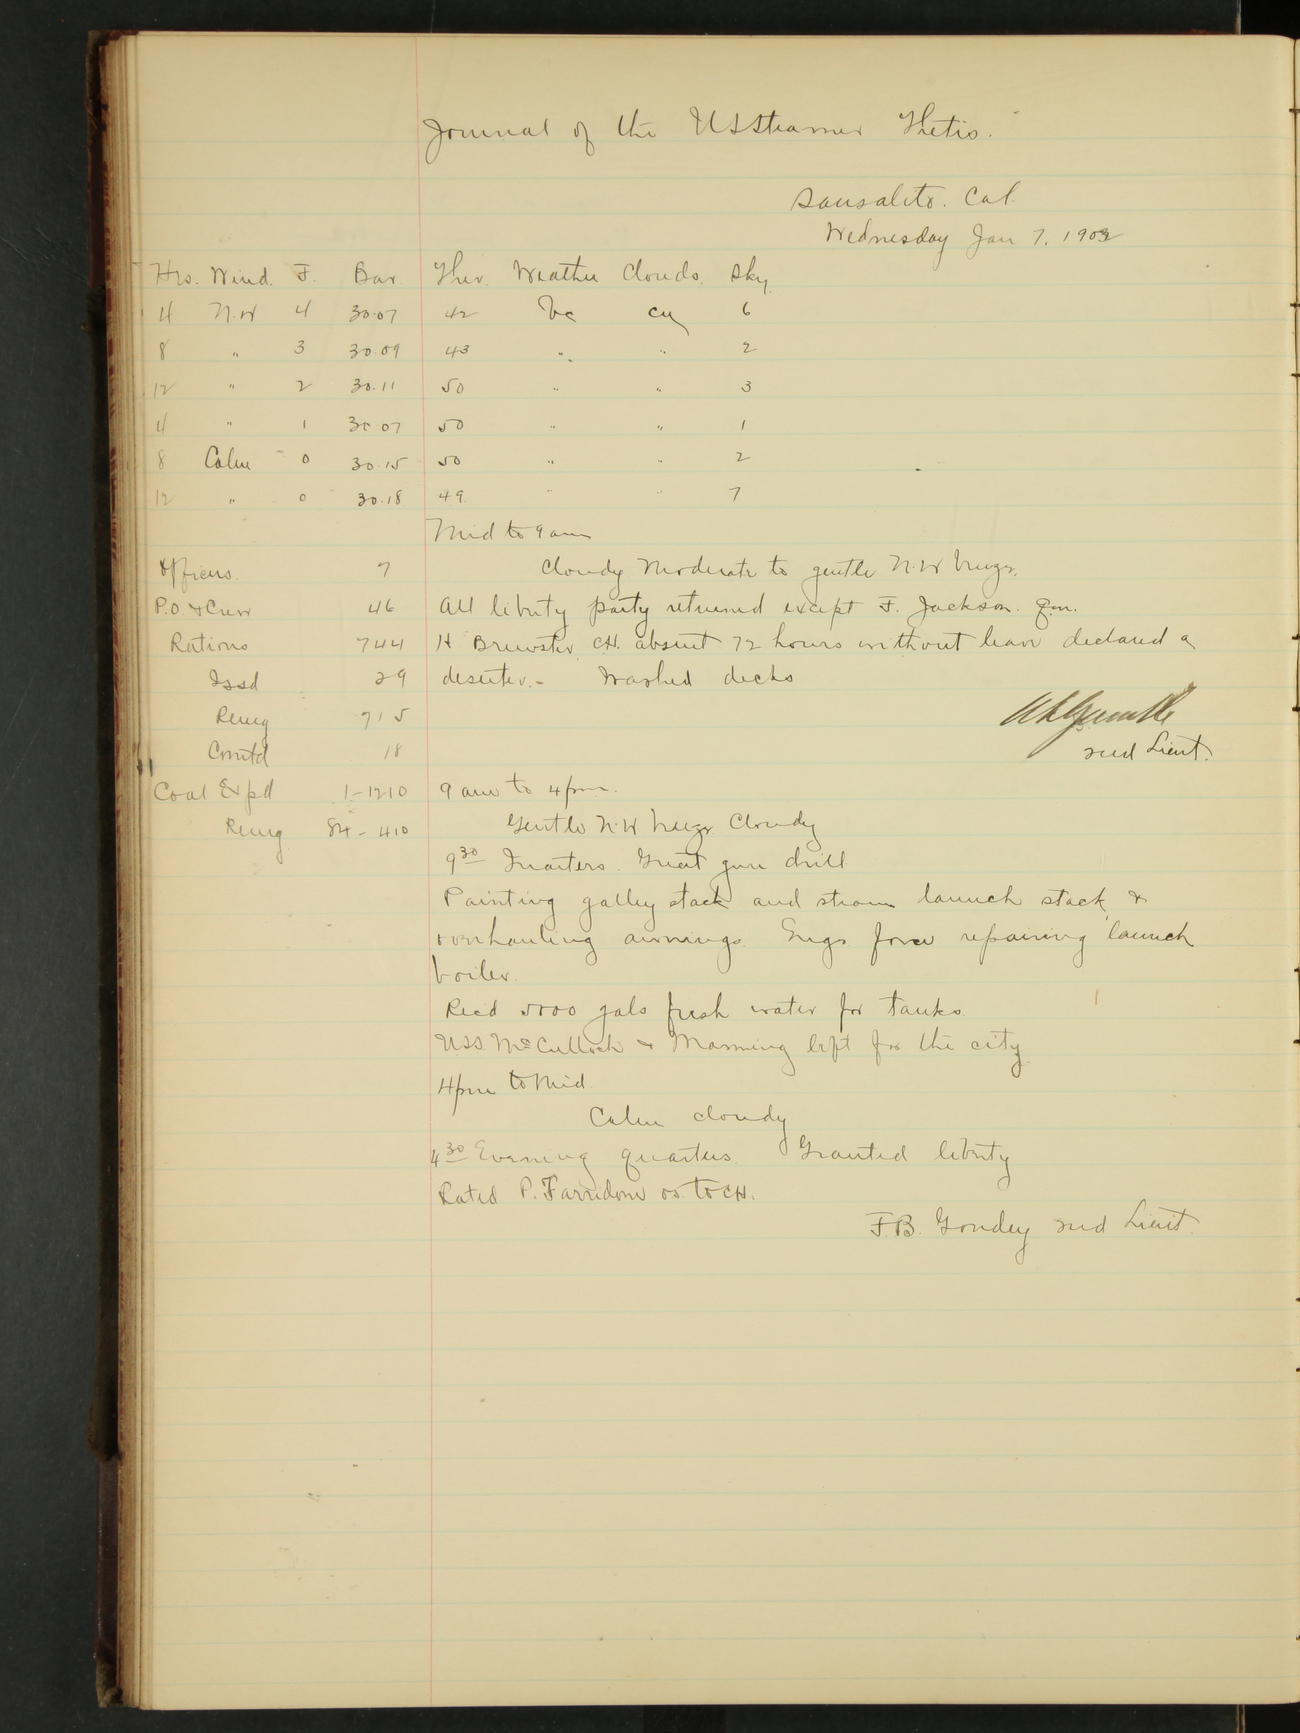 Journal of the U S Steamer Thetis.
Sausalito. Cal.
Wednesday Jan 7. 1903
Hrs. Wind. F. Bar. Ther. Weather Clouds. Sky.
4 N.W 4 30.07 42 bc cu 6
8 " 3 30.09 43 " " 2
12 " 2 30.11 50 " " 3
4 " 1 30 07 50 " " 1
8 Calm 0 30.15 50 " " 2
12 " 0 30.18 49 " " 7
Mid to 9 am
Officers. 7 Cloudy Moderate to gentle N.W breeze.
P.O. & Crew 46 All liberty party returned except F. Jackson. Q.m.
Rations 744 H Brewster, CH. absent 72 hours without leave declared a
Issd 29 deserter. - Washed decks
Remg 715
Comtd 18 2nd Lieut.
Coal Expd 1-1210 9 am to 4 pm.
Remg 84-410 Gentle N.W breeze Cloudy
9 30 Quarters. Great gun drill
Painting galley stack and steam launch stack, &
overhauling awnings. Engs force repairing launch
boiler.
Recd 5000 gals fresh water for tanks.
U.S.S. McCulloch & Manning left for the city
4 pm to Mid
Calm cloudy
4 30 Evening quarters. Granted liberty
Rated P. os. to CH.
F.B. 2nd Lieut.